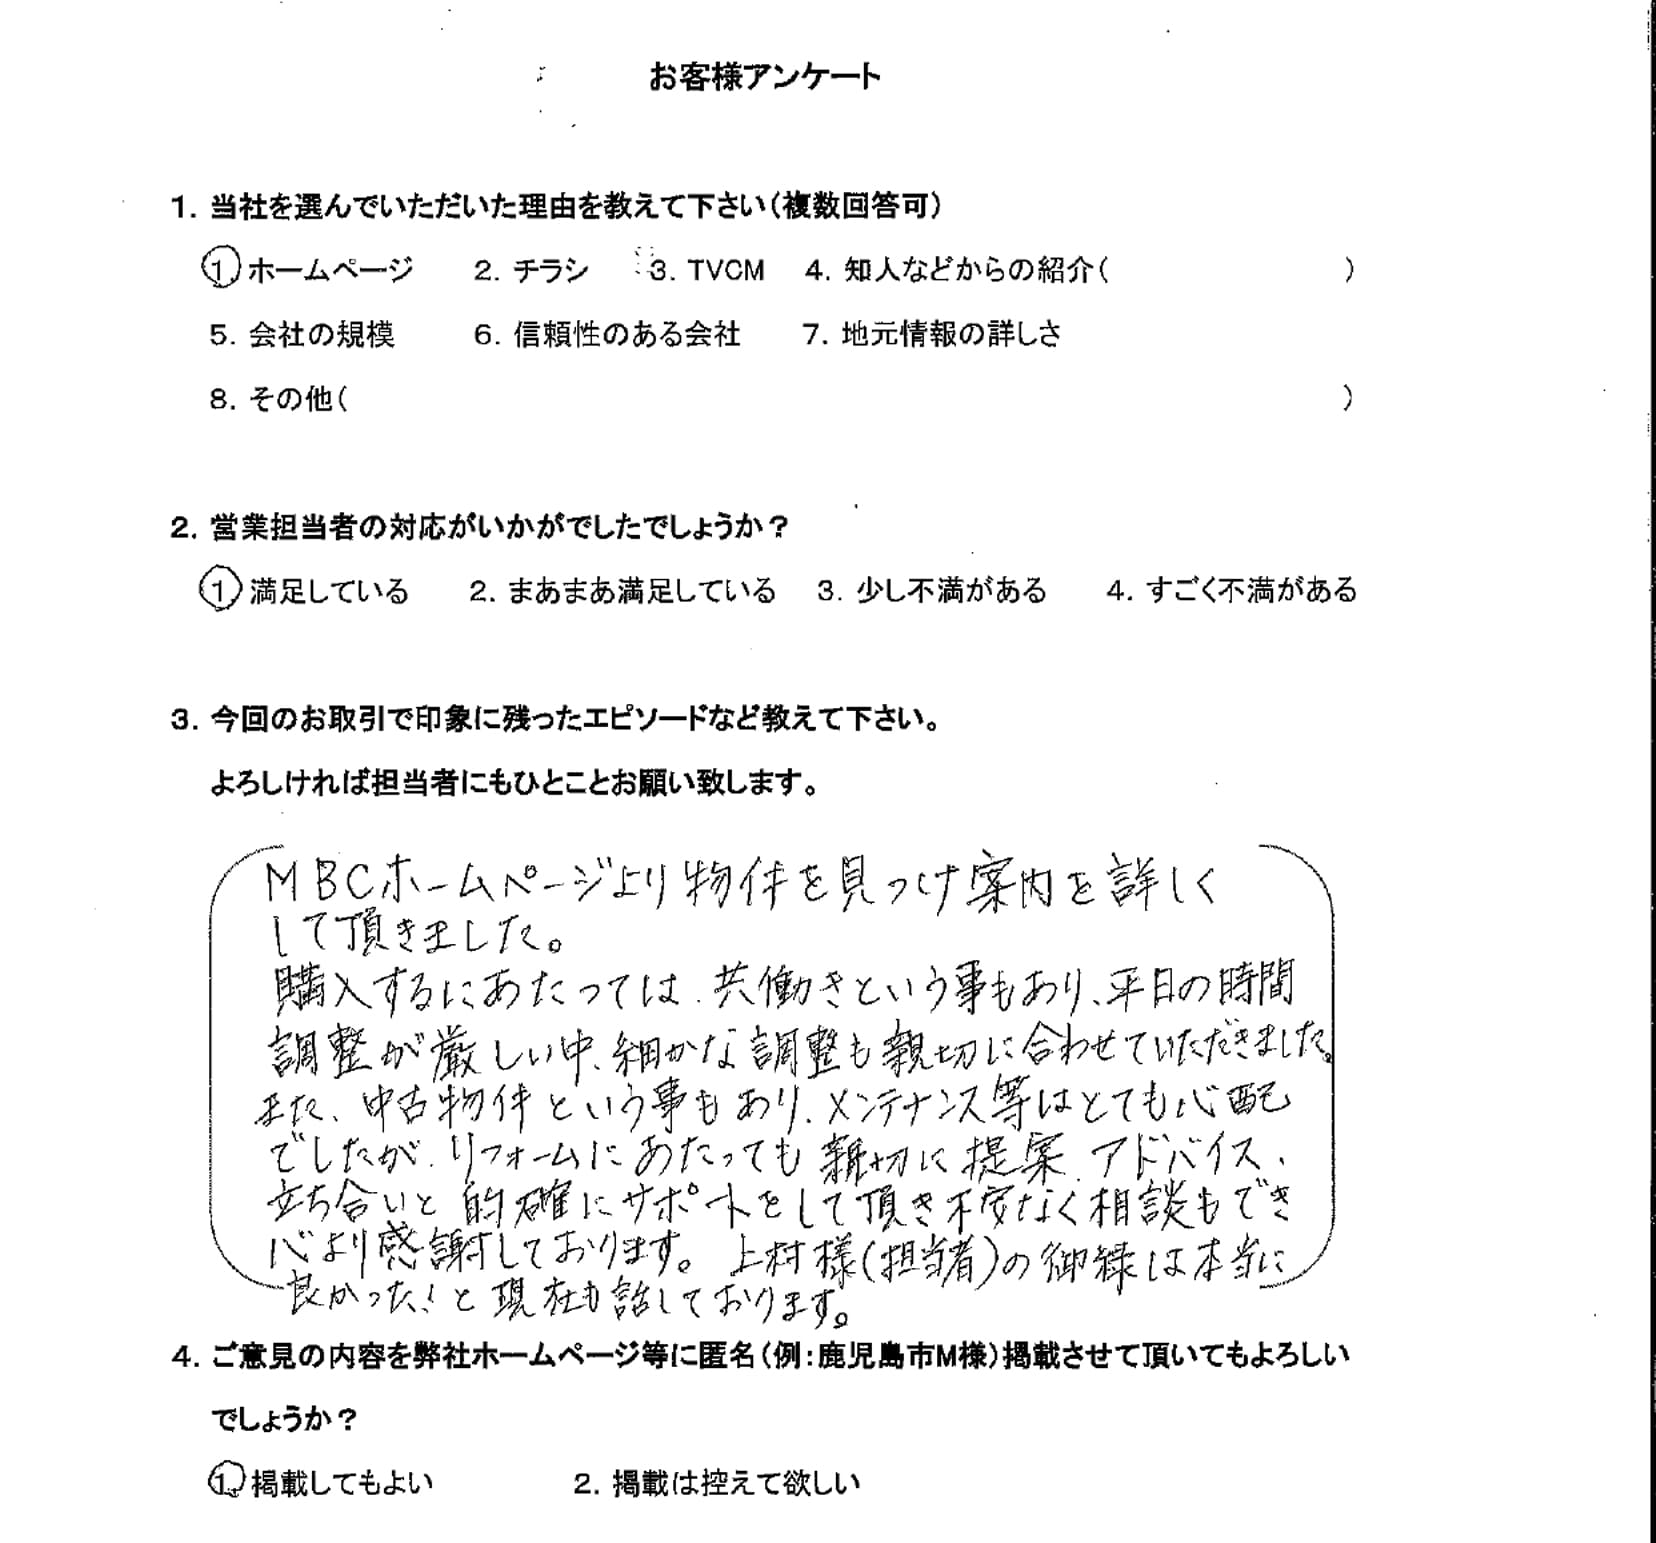 お客様アンケート
1. 当社を選んでいただいた理由を教えて下さい(複数回答可)
① ホームページ 2. チラシ 3. TVCM 4. 知人などからの紹介( )
5. 会社の規模 6. 信頼性のある会社 7. 地元情報の詳しさ
8. その他( )
2. 営業担当者の対応がいかがでしたでしょうか?
① 満足している 2. まあまあ満足している 3. 少し不満がある 4. すごく不満がある
3. 今回のお取引で印象に残ったエピソードなど教えて下さい。
よろしければ担当者にもひとことお願い致します。
MBCホームページより物件を見つけ案内を詳しく
して頂きました。
購入するにあたっては、共働きという事もあり、平日の時間
調整が厳しい中、細かな調整も親切に合わせていただきました。
また、中古物件という事もあり、メンテナンス等はとても心配
でしたが、リフォームにあたっても親切に提案、アドバイス、
立ち合いと的確にサポートをして頂き不安なく相談もでき
心より感謝しております。上村様(担当者)の御縁は本当に
良かった!と現在も話しております。
4. ご意見の内容を弊社ホームページ等に匿名(例:鹿児島市M様)掲載させて頂いてもよろしい
でしょうか?
① 掲載してもよい 2. 掲載は控えて欲しい